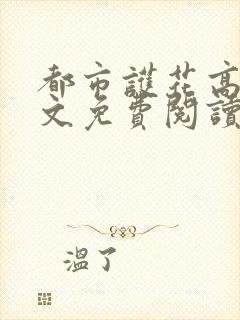 都市護花高
文免費閱讀
溫了